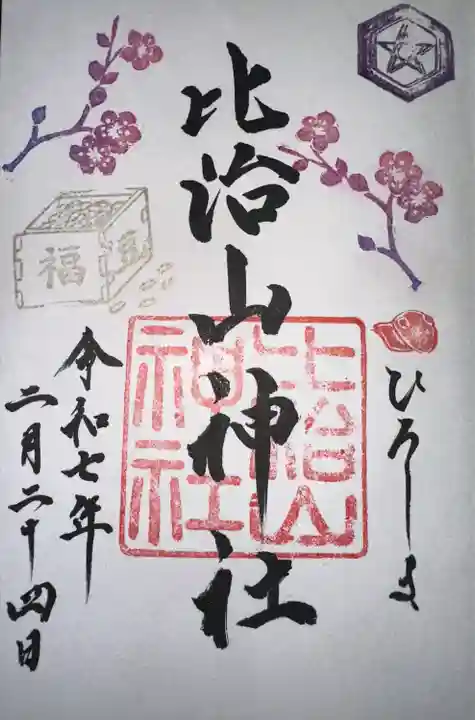 ひろしま
比治山神社
比治山
神社
令和七年
二月二十四日
福